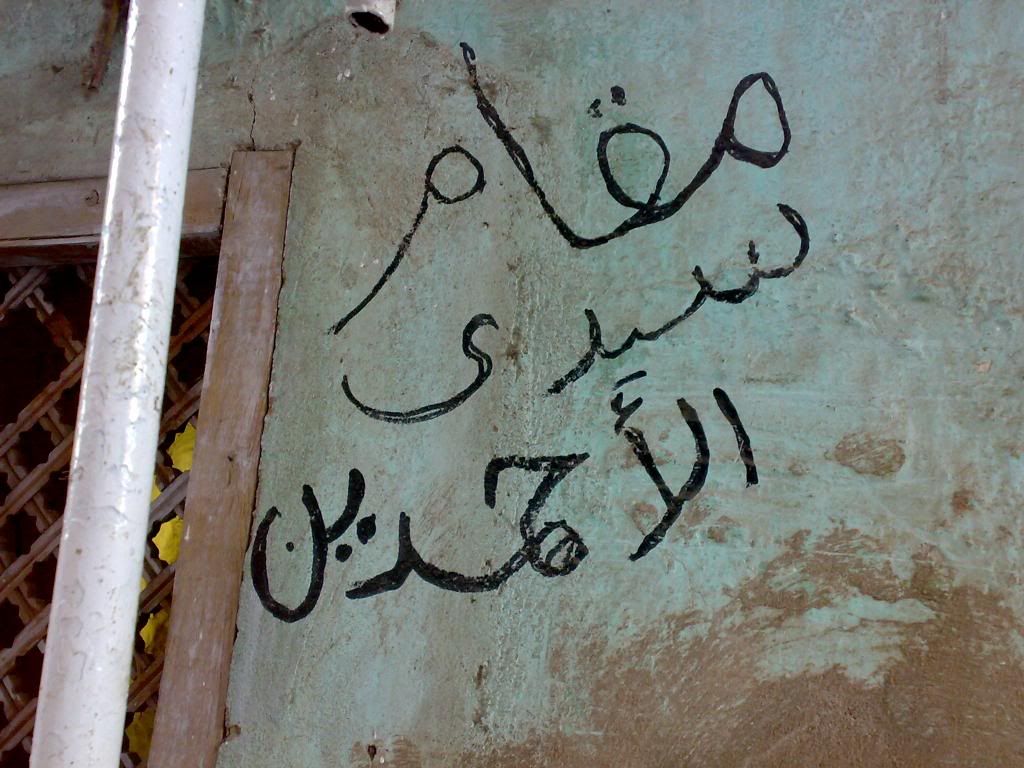 مقام
سيدى
الأحمدين